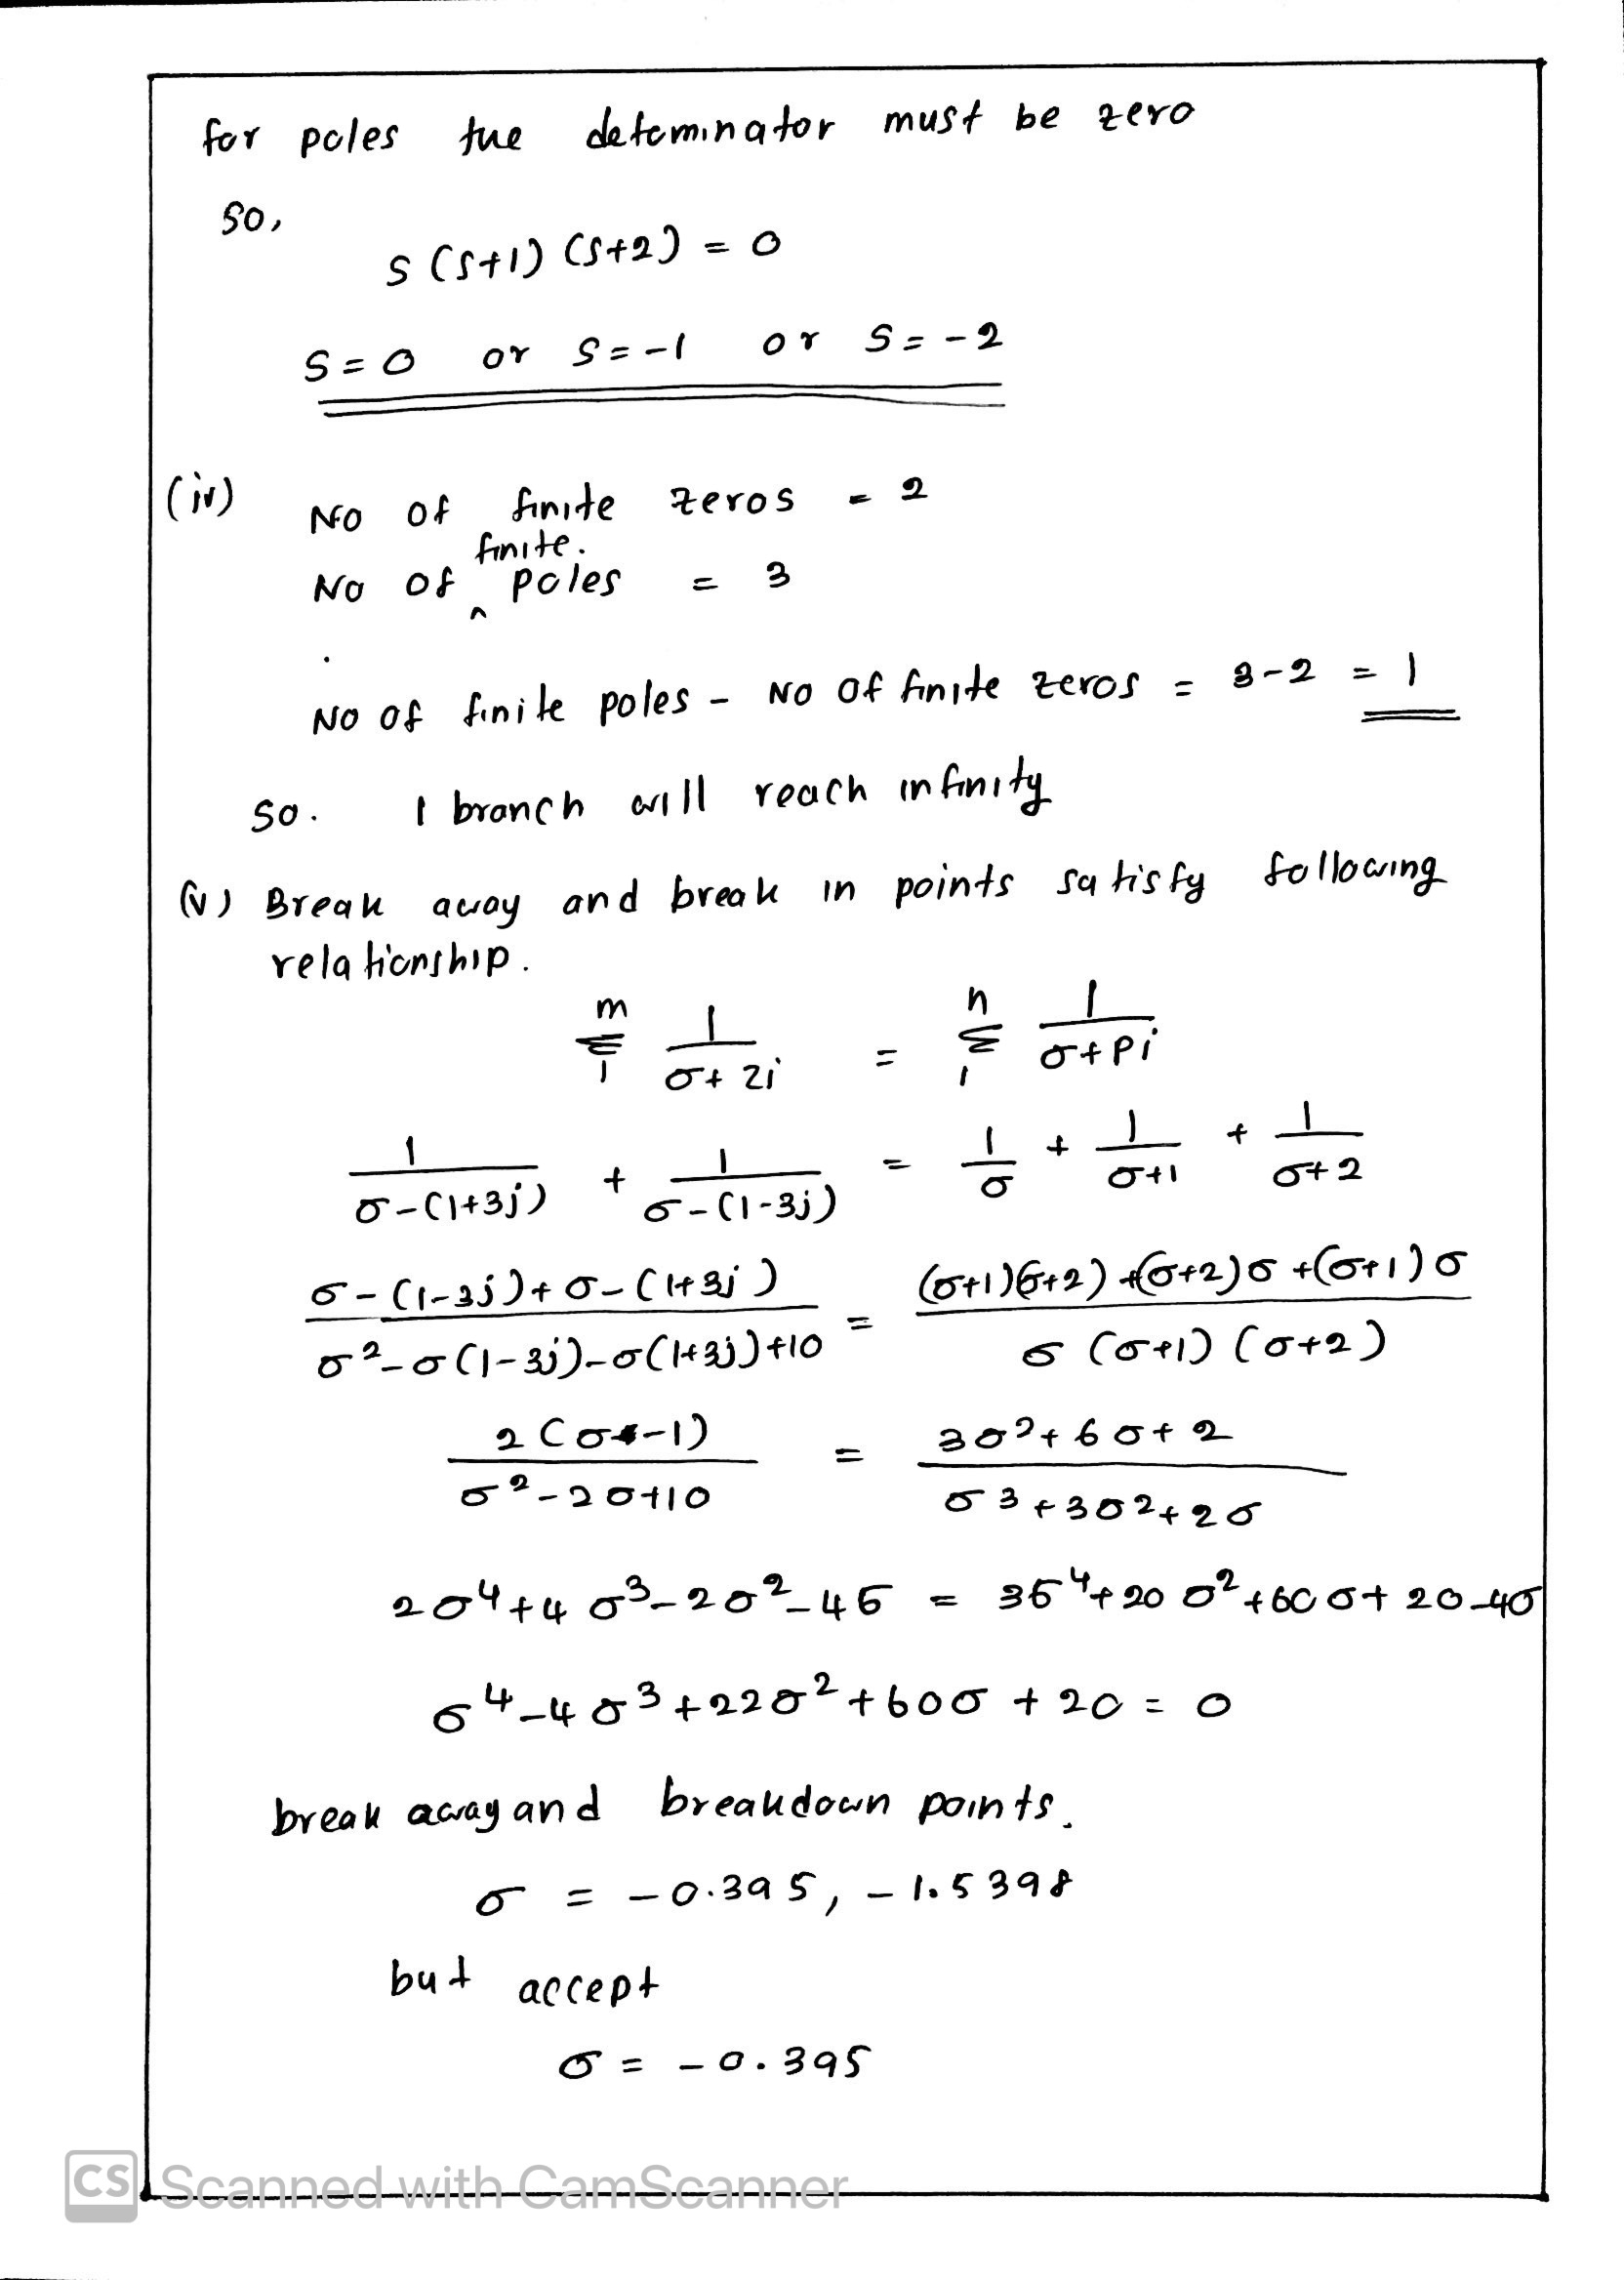 for poles the deteminator must be zero
so,
S (S+1) (S+2) = 0
S = 0 or S = -1 or S = -2
(iv) No of finite zeros = 2
finite.
No of ^ poles = 3
No of finite poles - No of finite zeros = 3-2 = 1
so. 1 branch will reach infinity
(v) Break away and break in points satisfy following
relationship.
m Σ 1 1/(σ+zi) = n Σ 1 1/(σ+Pi)
1/(σ-(1+3j)) + 1/(σ-(1-3j)) = 1/σ + 1/(σ+1) + 1/(σ+2)
(σ-(1-3j)+σ-(1+3j))/(σ²-σ(1-3j)-σ(1+3j)+10) = ((σ+1)(σ+2)+(σ+2)σ+(σ+1)σ)/(σ(σ+1)(σ+2))
2(σ-1)/(σ²-2σ+10) = (3σ²+6σ+2)/(σ³+3σ²+2σ)
2σ⁴+4σ³-2σ²-4σ = 3σ⁴+20σ²+60σ+20-4σ
σ⁴-4σ³+22σ²+60σ+20 = 0
break away and breakdown points.
σ = -0.395, -1.5398
but accept
σ = -0.395
CS Scanned with CamScanner